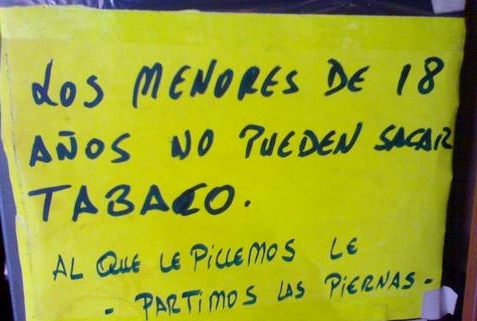 LOS MENORES DE 18
AÑOS NO PUEDEN SACAR
TABACO.
AL QUE LE PILLEMOS LE
- PARTIMOS LAS PIERNAS -